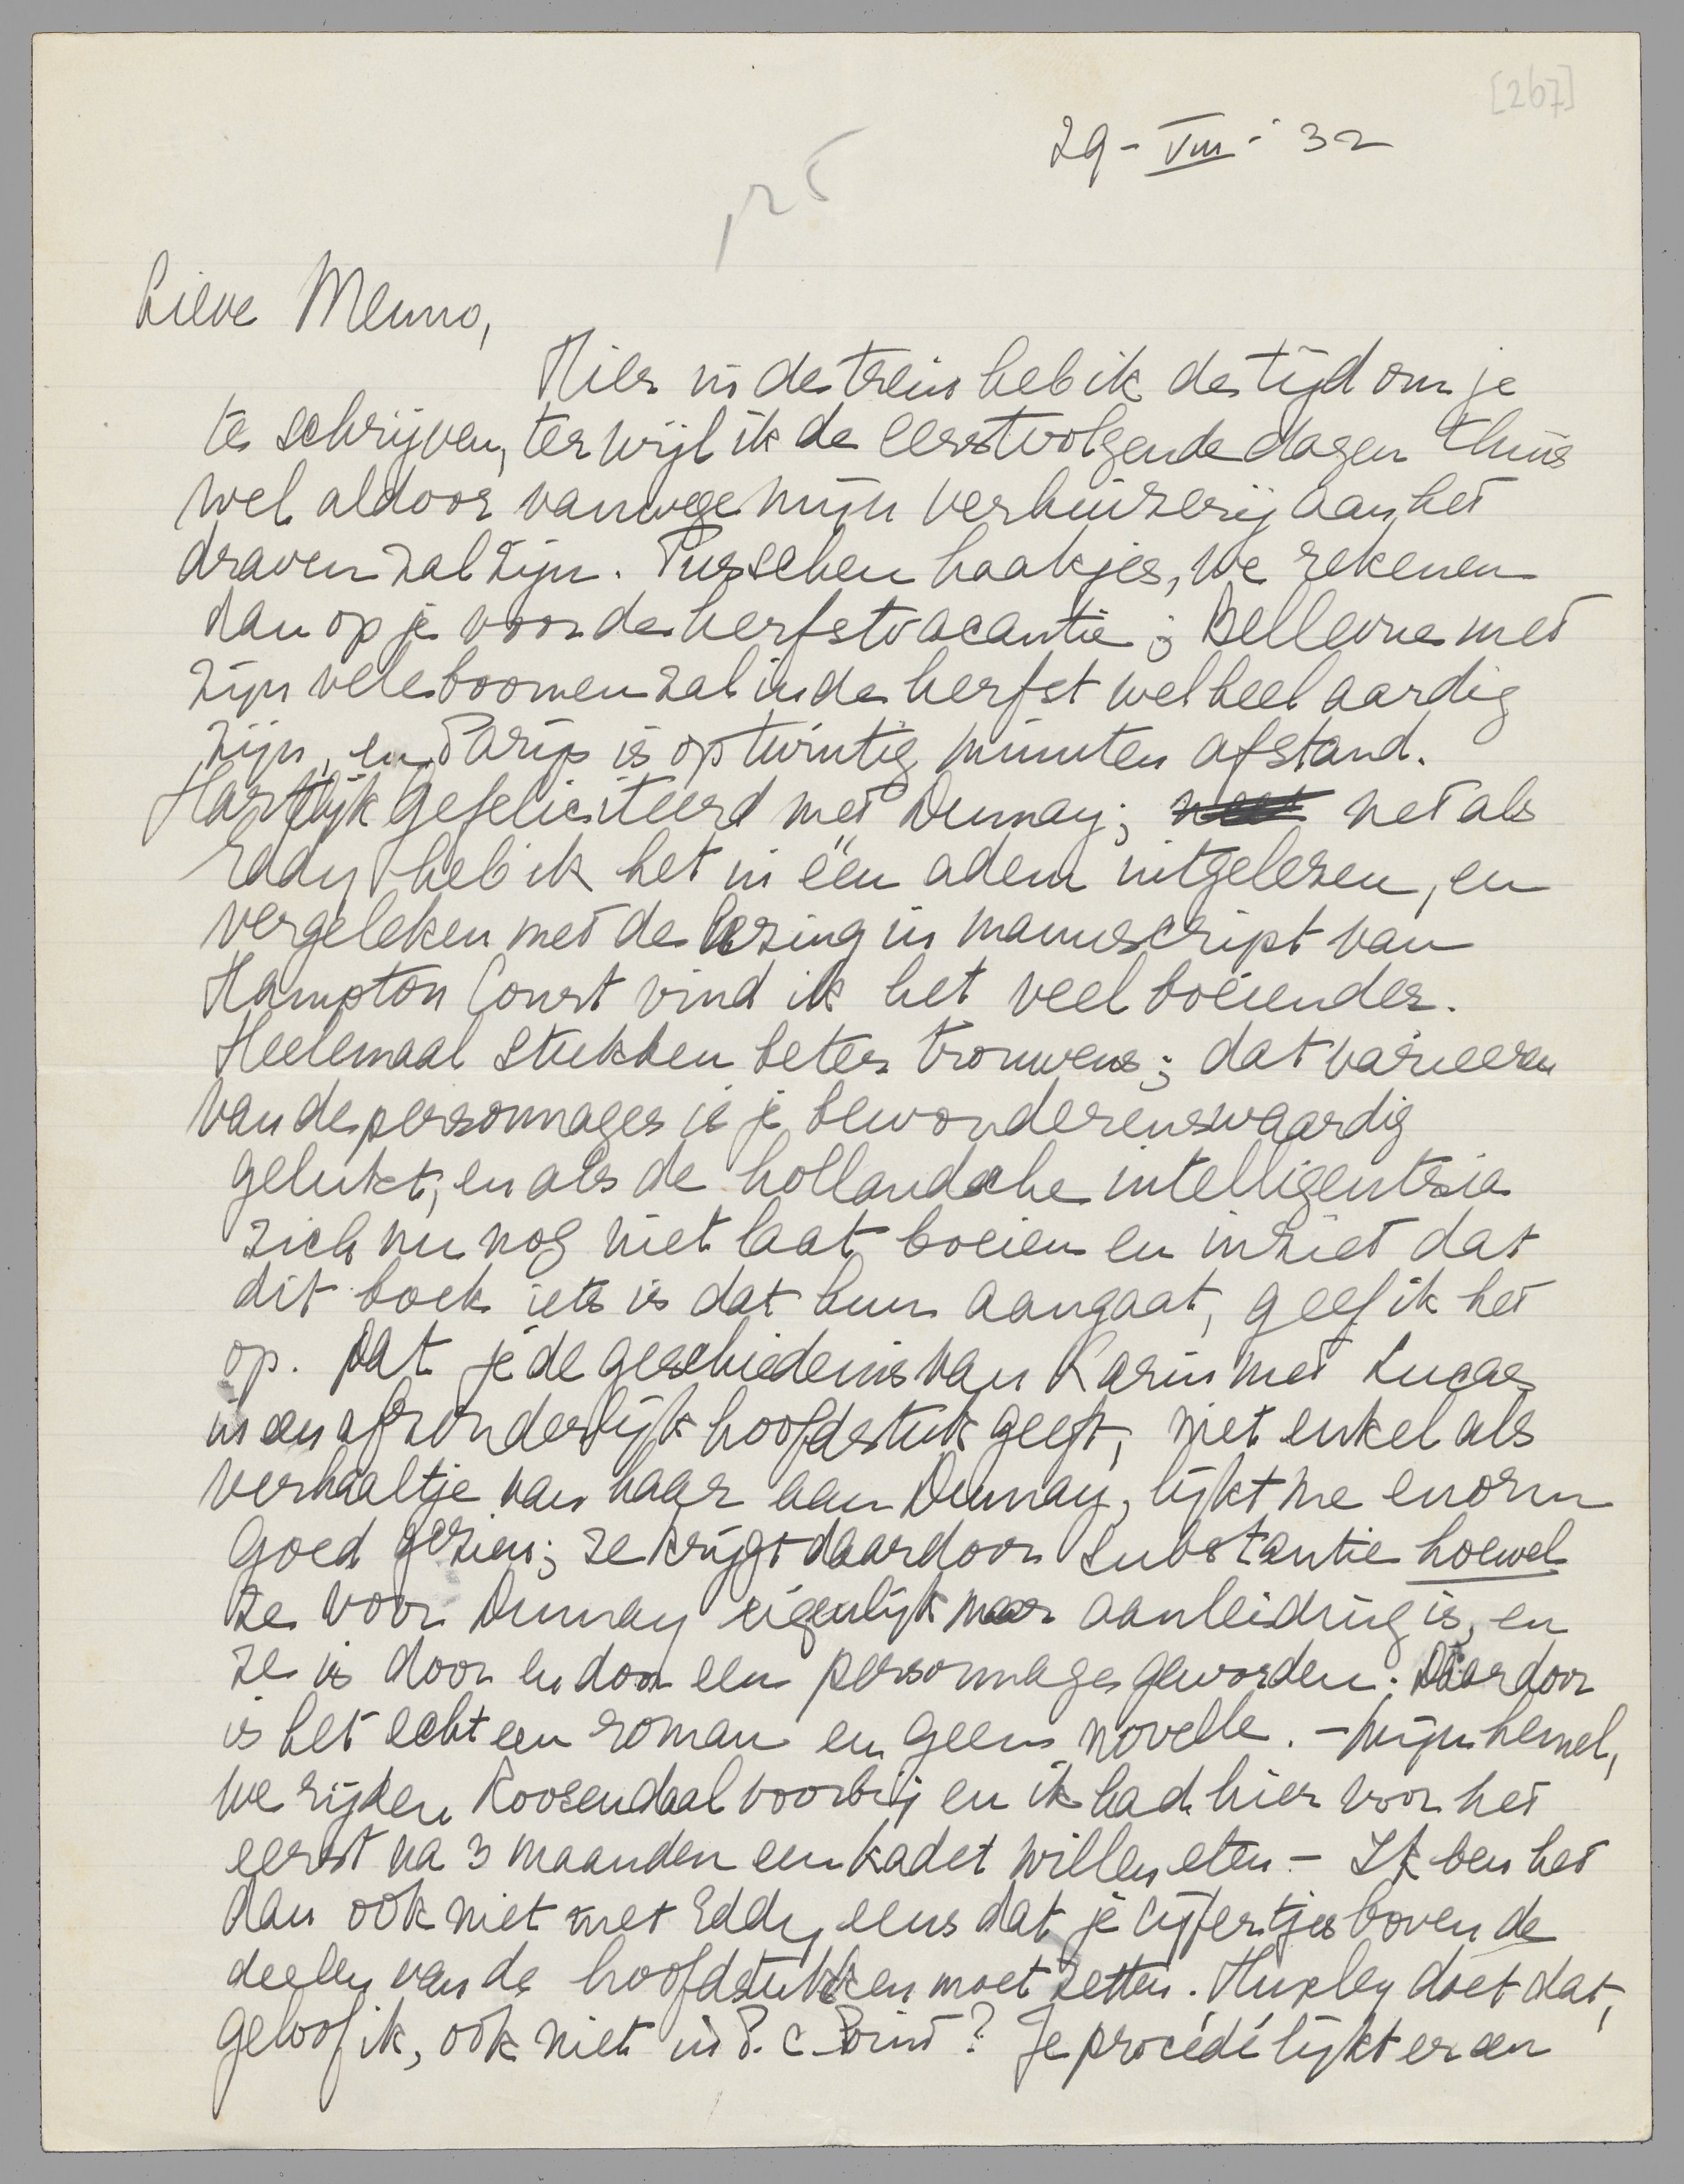 [267]
29 - VIII - '32
p25
Lieve Menno,
Hier in de trein heb ik de tijd om je
te schrijven, terwijl ik de eerstvolgende dagen thuis
wel aldoor vanwege mijn verhuizerij aan het
draven zal zijn. Tusschen haakjes, we rekenen
dan op je voor de herfstvacantie; Bellevue met
zijn vele boomen zal in de herfst wel heel aardig
zijn, en Parijs is op twintig minuten afstand.
Hartelijk gefeliciteerd met Dumay; net als
Eddy heb ik het in één adem uitgelezen, en
vergeleken met de lezing in manuscript van
Hampton Court vind ik het veel boeiender.
Heelemaal stukken beter trouwens; dat variëeren
van de personnages is je bewonderenswaardig
gelukt, en als de hollandsche intelligentsia
zich nu nog niet laat boeien en inziet dat
dit boek iets is dat hun aangaat, geef ik het
op. Dat je de geschiedenis van Karin met Lucas
in een afzonderlijk hoofdstuk geeft, niet enkel als
verhaaltje van haar aan Dumay, lijkt me enorm
goed gezien; ze krijgt daardoor substantie hoewel
ze voor Dumay eigenlijk maar aanleiding is, en
ze is door en door een personnage geworden. Daardoor
is het echt een roman en geen novelle. - Mijn hemel,
we rijden Roosendaal voorbij en ik had hier voor het
eerst na 3 maanden een kadet willen eten - Ik ben het
dan ook niet met Eddy eens dat je cijfertjes boven de
deelen van de hoofdstukken moet zetten. Huxley doet dat,
geloof ik, ook niet in P. C. Point? Je procédé lijkt er een